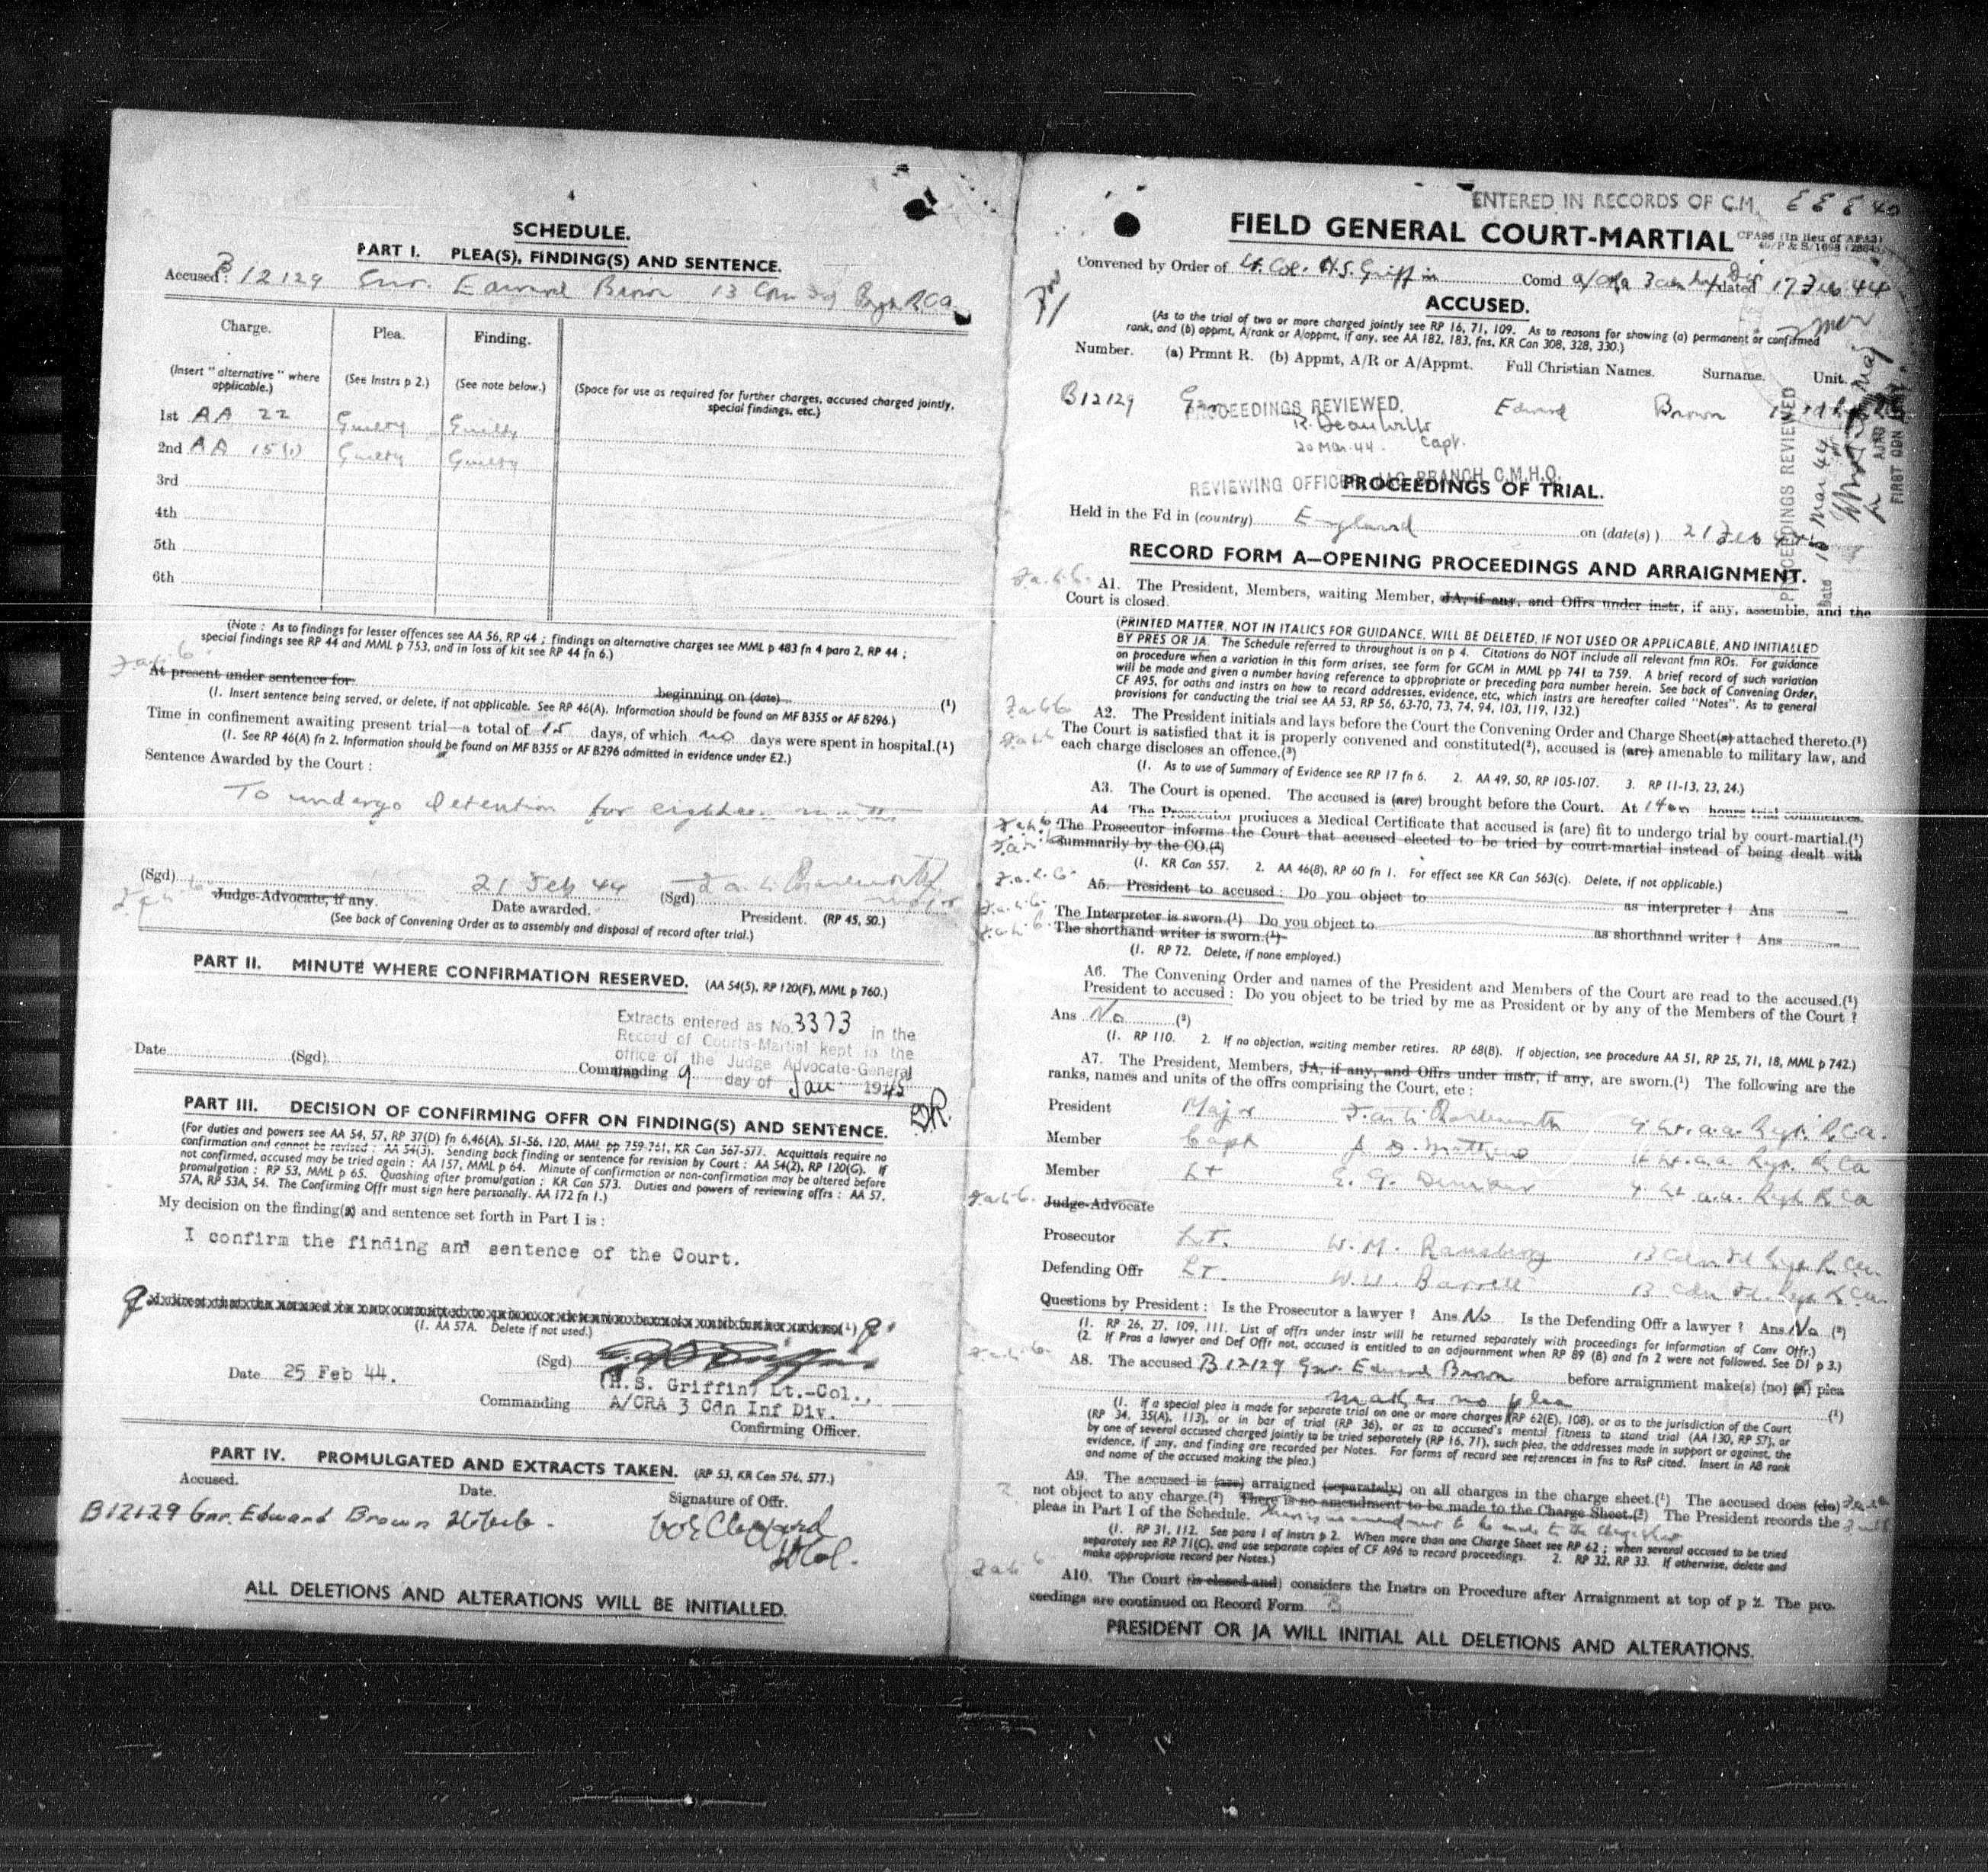 4
SCHEDULE.
PART I. PLEA(S), FINDING(S) AND SENTENCE.
Accused: B 12129 Gnr. Edward Brown 13 Cdn Fd Regt RCA
Charge. Plea. Finding.
(Insert "alternative" where applicable.) (See Instrs p 2.) (See note below.) (Space for use as required for further charges, accused charged jointly, special findings, etc.)
1st AA 22 Guilty Guilty
2nd AA 15(1) Guilty Guilty
3rd
4th
5th
6th
(Note: As to findings for lesser offences see AA 56, RP 44; findings on alternative charges see MML p 483 fn 4 para 2, RP 44;
special findings see RP 44 and MML p 753, and in loss of kit see RP 44 fn 6.)
At present under sentence for
beginning on (date) (1)
(1. Insert sentence being served, or delete, if not applicable. See RP 46(A). Information should be found on MF B355 or AF B296.)
Time in confinement awaiting present trial—a total of 15 days, of which no days were spent in hospital.(1)
(1. See RP 46(A) fn 2. Information should be found on MF B355 or AF B296 admitted in evidence under E2.)
Sentence Awarded by the Court:
To undergo detention for eighteen months
(Sgd) 21 Feb 44 (Sgd)
Judge-Advocate, if any. Date awarded. President. (RP 45, 50.)
(See back of Convening Order as to assembly and disposal of record after trial.)
PART II. MINUTE WHERE CONFIRMATION RESERVED. (AA 54(5), RP 120(F), MML p 760.)
Extracts entered as No. 3373 in the
Record of Courts-Martial kept in the
office of the Judge Advocate-General
Date (Sgd) Commanding
9 day of Jan 1945
DR.
PART III. DECISION OF CONFIRMING OFFR ON FINDING(S) AND SENTENCE.
(For duties and powers see AA 54, 57, RP 37(D) fn 6,46(A), 51-56, 120, MML pp 759-761, KR Can 567-577. Acquittals require no
confirmation and cannot be revised: AA 54(3). Sending back finding or sentence for revision by Court: AA 54(2), RP 120(G). If
not confirmed, accused may be tried again: AA 157, MML p 64. Minute of confirmation or non-confirmation may be altered before
promulgation: RP 53, MML p 65. Quashing after promulgation: KR Can 573. Duties and powers of reviewing offrs: AA 57,
57A, RP 53A, 54. The Confirming Offr must sign here personally. AA 172 fn 1.)
My decision on the finding(s) and sentence set forth in Part I is:
I confirm the finding and sentence of the Court.
(1. AA 57A. Delete if not used.)
Date 25 Feb 44. (Sgd)
(H.S. Griffin) Lt.-Col.,
Commanding A/CRA 3 Cdn Inf Div.
Confirming Officer.
PART IV. PROMULGATED AND EXTRACTS TAKEN. (RP 53, KR Can 576, 577.)
Accused. Date. Signature of Offr.
B12129 Gnr. Edward Brown
ALL DELETIONS AND ALTERATIONS WILL BE INITIALLED.
ENTERED IN RECORDS OF C.M.
FIELD GENERAL COURT-MARTIAL
CFA96 (In lieu of AFA3)
Convened by Order of Lt. Col. H.S. Griffin Comd A/CRA 3 Cdn Inf Div dated 17 Feb 44
ACCUSED.
(As to the trial of two or more charged jointly see RP 16, 71, 109. As to reasons for showing (a) permanent or confirmed
rank, and (b) appmt, A/rank or A/appmt, if any, see AA 182, 183, fns, KR Can 308, 328, 330.)
Number. (a) Prmnt R. (b) Appmt, A/R or A/Appmt. Full Christian Names. Surname. Unit.
B12129 Gnr Edward Brown
PROCEEDINGS REVIEWED.
20 Mar. 44. Capt.
REVIEWING OFFICER, JAG BRANCH, C.M.H.Q.
PROCEEDINGS REVIEWED
Date 10 Mar 44
PROCEEDINGS OF TRIAL.
Held in the Fd in (country) England on (date(s)) 21 Feb 44
RECORD FORM A—OPENING PROCEEDINGS AND ARRAIGNMENT.
A1. The President, Members, waiting Member, JA, if any, and Offrs under instr, if any, assemble, and the
Court is closed.
(PRINTED MATTER, NOT IN ITALICS FOR GUIDANCE, WILL BE DELETED, IF NOT USED OR APPLICABLE, AND INITIALLED
BY PRES OR JA. The Schedule referred to throughout is on p 4. Citations do NOT include all relevant fmn ROs. For guidance
on procedure when a variation in this form arises, see form for GCM in MML pp 741 to 759. A brief record of such variation
will be made and given a number having reference to appropriate or preceding para number herein. See back of Convening Order,
CF A95, for oaths and instrs on how to record addresses, evidence, etc, which instrs are hereafter called "Notes". As to general
provisions for conducting the trial see AA 53, RP 56, 63-70, 73, 74, 94, 103, 119, 132.)
A2. The President initials and lays before the Court the Convening Order and Charge Sheet(s) attached thereto.(1)
The Court is satisfied that it is properly convened and constituted(2), accused is (are) amenable to military law, and
each charge discloses an offence.(3)
(1. As to use of Summary of Evidence see RP 17 fn 6. 2. AA 49, 50, RP 105-107. 3. RP 11-13, 23, 24.)
A3. The Court is opened. The accused is (are) brought before the Court. At 1400 hours trial commences.
A4 The Prosecutor produces a Medical Certificate that accused is (are) fit to undergo trial by court-martial.(1)
The Prosecutor informs the Court that accused elected to be tried by court-martial instead of being dealt with
summarily by the CO.(2)
(1. KR Can 557. 2. AA 46(8), RP 60 fn 1. For effect see KR Can 563(c). Delete, if not applicable.)
A5. President to accused: Do you object to as interpreter? Ans
The Interpreter is sworn.(1) Do you object to as shorthand writer? Ans
The shorthand writer is sworn.(1)
(1. RP 72. Delete, if none employed.)
A6. The Convening Order and names of the President and Members of the Court are read to the accused.(1)
President to accused: Do you object to be tried by me as President or by any of the Members of the Court?
Ans No (2)
(1. RP 110. 2. If no objection, waiting member retires. RP 68(B). If objection, see procedure AA 51, RP 25, 71, 18, MML p 742.)
A7. The President, Members, JA, if any, and Offrs under instr, if any, are sworn.(1) The following are the
ranks, names and units of the offrs comprising the Court, etc:
President Major 4 Lt. a.a. Regt. RCA.
Member Capt 4 Lt. a.a. Regt. RCA
Member Lt 4 Lt a.a. Regt RCA
Judge-Advocate
Prosecutor Lt. W. M. 13 Cdn Fd Regt RCA.
Defending Offr Lt. W. W. Barrett 13 Cdn Fd. Regt RCA.
Questions by President: Is the Prosecutor a lawyer? Ans No Is the Defending Offr a lawyer? Ans No (2)
(1. RP 26, 27, 109, 111. List of offrs under instr will be returned separately with proceedings for information of Conv Offr.)
(2. If Pros a lawyer and Def Offr not, accused is entitled to an adjournment when RP 89 (B) and fn 2 were not followed. See D1 p 3.)
A8. The accused B 12129 Gnr. Edward Brown before arraignment make(s) (no) (a) plea
makes no plea (1)
(1. If a special plea is made for separate trial on one or more charges (RP 62(E), 108), or as to the jurisdiction of the Court
(RP 34, 35(A), 113), or in bar of trial (RP 36), or as to accused's mental fitness to stand trial (AA 130, RP 57), or
by one of several accused charged jointly to be tried separately (RP 16, 71), such plea, the addresses made in support or against, the
evidence, if any, and finding are recorded per Notes. For forms of record see references in fns to RsP cited. Insert in A8 rank
and name of the accused making the plea.)
A9. The accused is (are) arraigned (separately) on all charges in the charge sheet.(1) The accused does (do)
not object to any charge.(2) There is no amendment to be made to the Charge Sheet.(2) The President records the
pleas in Part 1 of the Schedule. There is no amendment to be made to the Charge Sheet
(1. RP 31, 112. See para 1 of Instrs p 2. When more than one Charge Sheet see RP 62; when several accused to be tried
separately see RP 71(C), and use separate copies of CF A96 to record proceedings. 2. RP 32, RP 33. If otherwise, delete and
make appropriate record per Notes.)
A10. The Court (is closed and) considers the Instrs on Procedure after Arraignment at top of p 2. The pro-
ceedings are continued on Record Form B
PRESIDENT OR JA WILL INITIAL ALL DELETIONS AND ALTERATIONS.